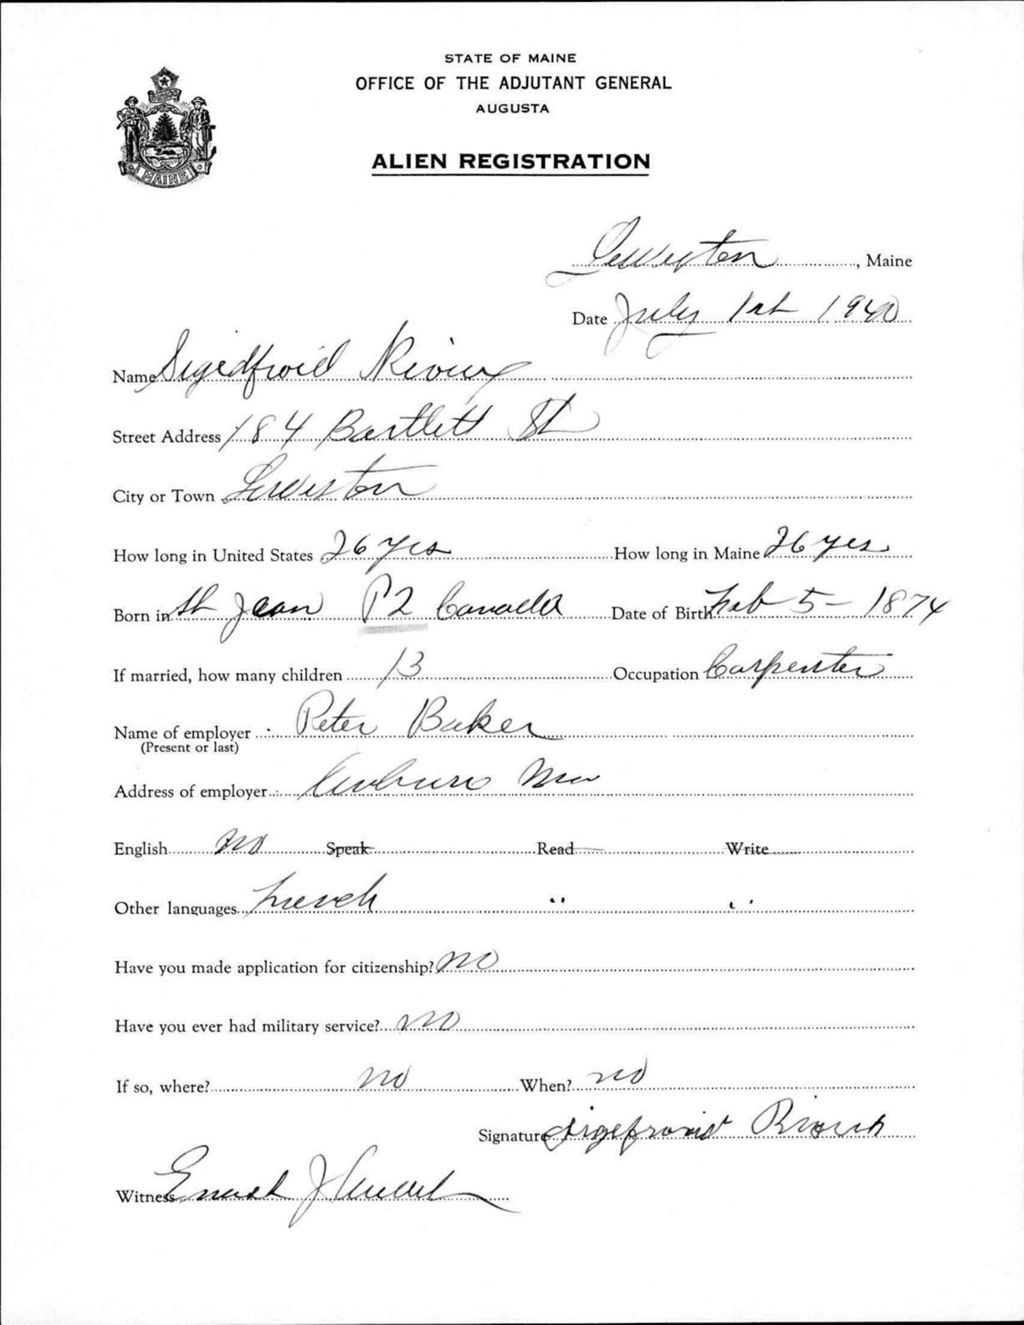 STATE OF MAINE
OFFICE OF THE ADJUTANT GENERAL
AUGUSTA
MAINE
ALIEN REGISTRATION
Lewiston, Maine
Date July 1st 1940
Name Sigedfroid Rioux
Street Address 184 Bartlett St
City or Town Lewiston
How long in United States 26 yrs How long in Maine 26 yrs
Born in St Jean P2 Canada Date of Birth Feb 5 - 1874
If married, how many children 13 Occupation Carpenter
Name of employer Peter Baker
(Present or last)
Address of employer Auburn Me
English no Speak Read Write
Other languages French " "
Have you made application for citizenship? no
Have you ever had military service? no
If so, where? no When? no
Signature Rioux
Witness